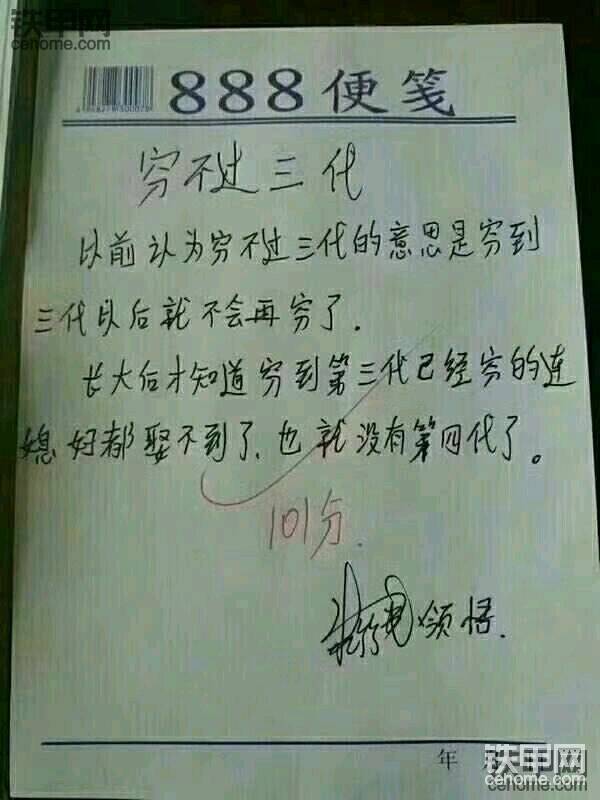 铁甲网
cehome.com
888便笺
穷不过三代
以前认为穷不过三代的意思是穷到
三代以后就不会再穷了.
长大后才知道穷到第三代已经穷的连
媳妇都娶不到了、也就没有第四代了。
101分.
领悟.
年
铁甲网
cehome.com